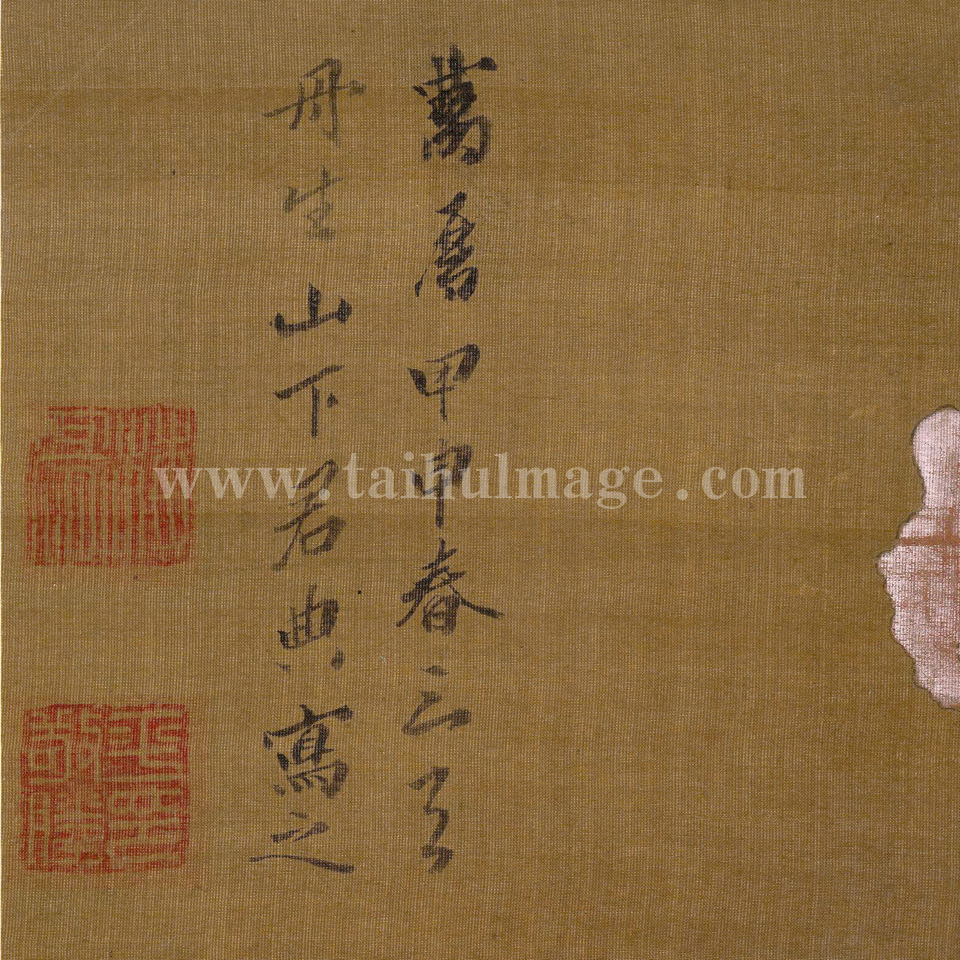 萬曆甲申春三月
丹生山下君典寫之
www.taihuImage.com